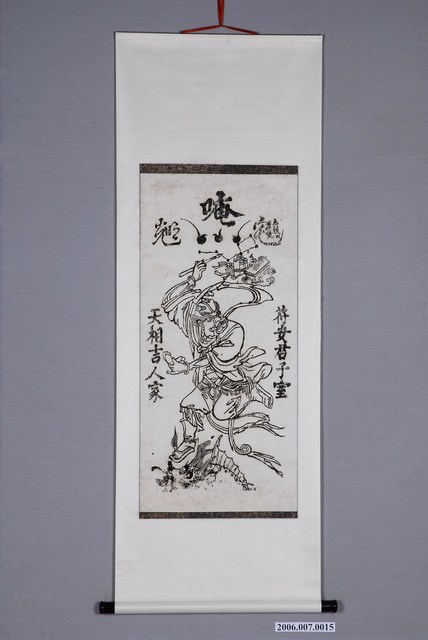 唵
符安君子室
天相吉人家
2006.007.0015